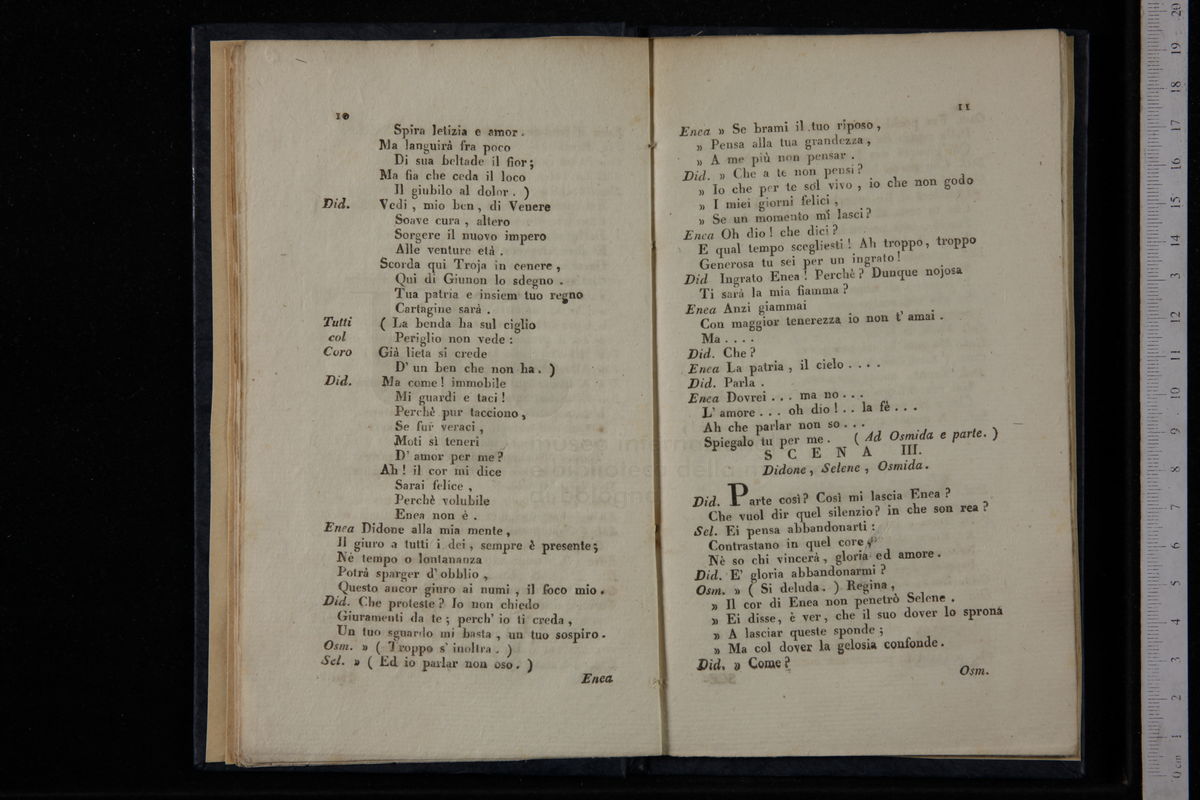 10
Spira letizia e amor.
Ma languirà fra poco
Di sua beltade il fior;
Ma fia che ceda il loco
Il giubilo al dolor. )
Did. Vedi, mio ben, di Venere
Soave cura, altero
Sorgere il nuovo impero
Alle venture età.
Scorda qui Troja in cenere,
Qui di Giunon lo sdegno.
Tua patria e insiem tuo regno
Cartagine sarà.
Tutti ( La benda ha sul ciglio
col Periglio non vede:
Coro Già lieta si crede
D' un ben che non ha. )
Did. Ma come! immobile
Mi guardi e taci!
Perchè pur tacciono,
Se fur veraci,
Moti sì teneri
D' amor per me?
Ah! il cor mi dice
Sarai felice,
Perchè volubile
Enea non è.
Enea Didone alla mia mente,
Il giuro a tutti i dei, sempre è presente;
Nè tempo o lontananza
Potrà sparger d' obblio,
Questo ancor giuro ai numi, il foco mio.
Did. Che proteste? Io non chiedo
Giuramenti da te; perch' io ti creda,
Un tuo sguardo mi basta, un tuo sospiro.
Osm. » ( Troppo s' inoltra. )
Sel. » ( Ed io parlar non oso. )
Enea
11
Enea » Se brami il tuo riposo,
» Pensa alla tua grandezza,
» A me più non pensar.
Did. » Che a te non pensi?
» Io che per te sol vivo, io che non godo
» I miei giorni felici,
» Se un momento mi lasci?
Enea Oh dio! che dici?
E qual tempo scegliesti! Ah troppo, troppo
Generosa tu sei per un ingrato!
Did Ingrato Enea! Perchè? Dunque nojosa
Ti sarà la mia fiamma?
Enea Anzi giammai
Con maggior tenerezza io non t' amai.
Ma . . . .
Did. Che?
Enea La patria, il cielo . . . .
Did. Parla.
Enea Dovrei . . . ma no . . .
L' amore . . . oh dio! . . la fè . . .
Ah che parlar non so . . .
Spiegalo tu per me. ( Ad Osmida e parte. )
SCENA III.
Didone, Selene, Osmida.
Did. Parte così? Così mi lascia Enea?
Che vuol dir quel silenzio? in che son rea?
Sel. Ei pensa abbandonarti:
Contrastano in quel core,
Nè so chi vincerà, gloria ed amore.
Did. E' gloria abbandonarmi?
Osm. » ( Si deluda. ) Regina,
» Il cor di Enea non penetrò Selene.
» Ei disse, è ver, che il suo dover lo sprona
» A lasciar queste sponde;
» Ma col dover la gelosia confonde.
Did. » Come?
Osm.